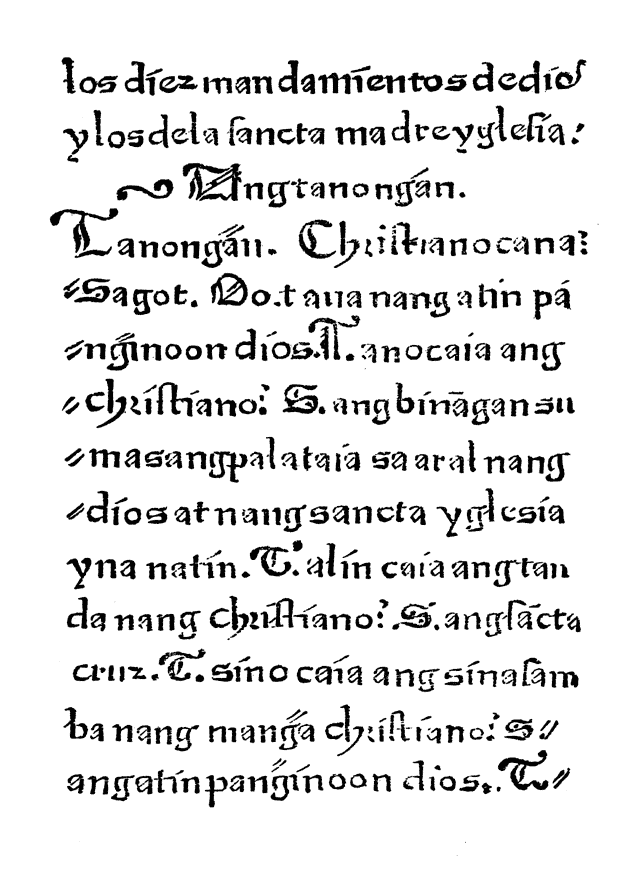 los díez mandamíentos de díos
y los de la sancta madre yglesía:
Ang tanongán.
Tanongán. Christiano cana?
Sagot. Oo. t aua nang atin pá
ngínoon díos. T. ano caía ang
christíano? S. ang bínãgan su
masangpalataía sa aral nang
díos at nang sancta yglesía
yna natín. T. alín caía ang tan
da nang christíano? S. ang sãcta
cruz. T. síno caía ang sínasam
ba nang manga christíano? S
ang atín pangínoon díos. T